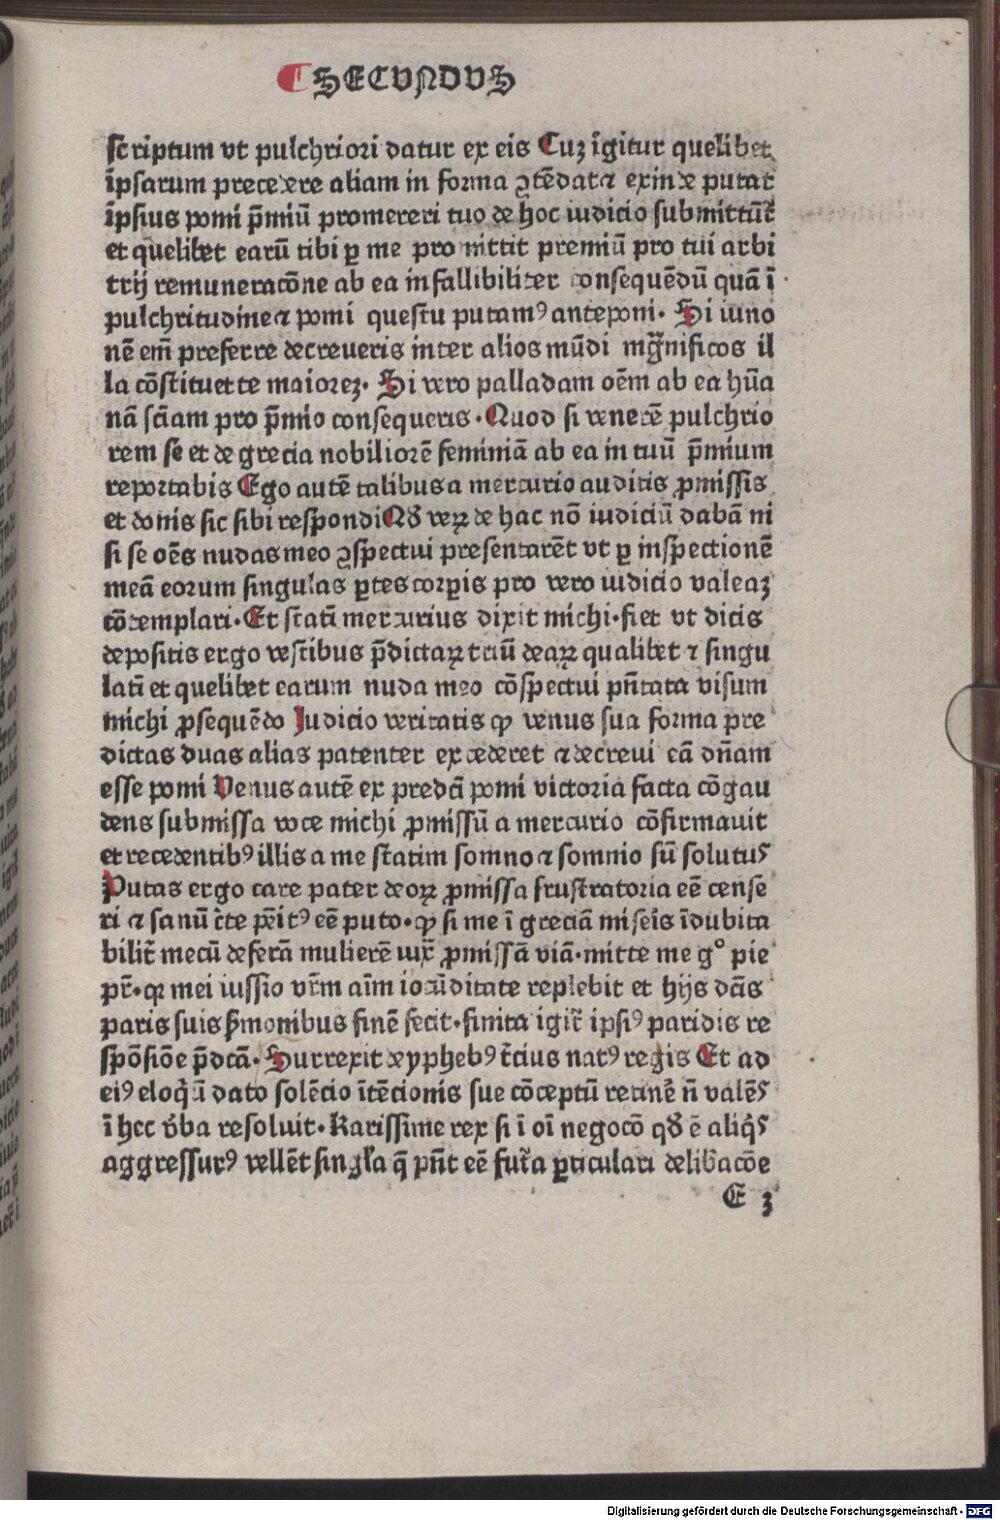 ¶ SECVNDVS
scriptum vt pulchriori datur ex eis Cuȝ īgitur quelibet
ipsarum precedere aliam in forma ꝯtēdat ⁊ exinde putat
ipsius pomi p̄miū promereri tuo de hoc iudicio submittūt᷑
et quelibet earū tibi ꝑ me promittit premiū pro tui arbi
trij remuneracōne ab ea infallibiliter consequēdū quā ī
pulchritudine ⁊ pomi questu putamꝰ anteponi· Si iuno
nē em̄ preferre decreueris inter alios mūdi mḡnificos il
la cōstituet te maiorez· Si vero palladam oēm ab ea hūa
nā sciam pro p̄mio consequeris· Quod si venerē pulchrio
rem se et de grecia nobiliorē feminiā ab ea in tuū p̄mium
reportabis Ego autē talibus a mercurio auditis ꝓmissis
et donis sic sibi respondi Qð veꝝ de hac nō iudiciū dabā ni
si se oēs nudas meo ꝯspectui presentarēt vt ꝑ inspectionē
meā eorum singulas ꝑtes corꝑis pro vero iudicio valeaȝ
cōtemplari· Et stati mercurius dixit michi· fiet vt dicis
depositis ergo vestibus p̄dictaꝝ triū deaꝝ qualibet ⁊ singu
lati et quelibet earum nuda meo cōspectui pn̄tata visum
michi ꝓsequēdo Judicio veritatis ꝙ venus sua forma pre
dictas duas alias patenter excederet ⁊ decreui eā dn̄am
esse pomi Venus autē ex predcā pomi victoria facta cōgau
dens submissa voce michi ꝓmissū a mercurio cōfirmauit
et recedentibꝰ illis a me statim somno ⁊ somnio sū solutuꝰ
Putas ergo care pater deoꝝ ꝓmissa frustratoria eē cense
ri ⁊ sanū c̄te pēitꝰ eē puto· ꝙ si me ī greciā miseis īdubita
bilit᷑ mecū deferā mulierē iux᷑ ꝓmissā viā· mitte me gͦ pie
pr̄· qꝛ mei iussio vr̄m aīm iocūditate replebit et hijs dcīs
paris suis ẜmonibus finē fecit· finita igit᷑ ipsiꝰ paridis re
spōsiōe p̄dcā· Surrexit deyphebꝰ t̄cius natꝰ regis Et ad
eiꝰ eloqͥū dato solēcio ītēcionis sue cōceptū retinē n̄ valēs
ī hec v̄ba resoluit· Karissime rex si ī oī negocō qð ē aliqͥs
aggressurꝰ vellēt singl̄a q̄ pn̄t eē fut᷑a ꝑticulari delib̄acōe
E 3
Digitalisierung gefördert durch die Deutsche Forschungsgemeinschaft - DFG